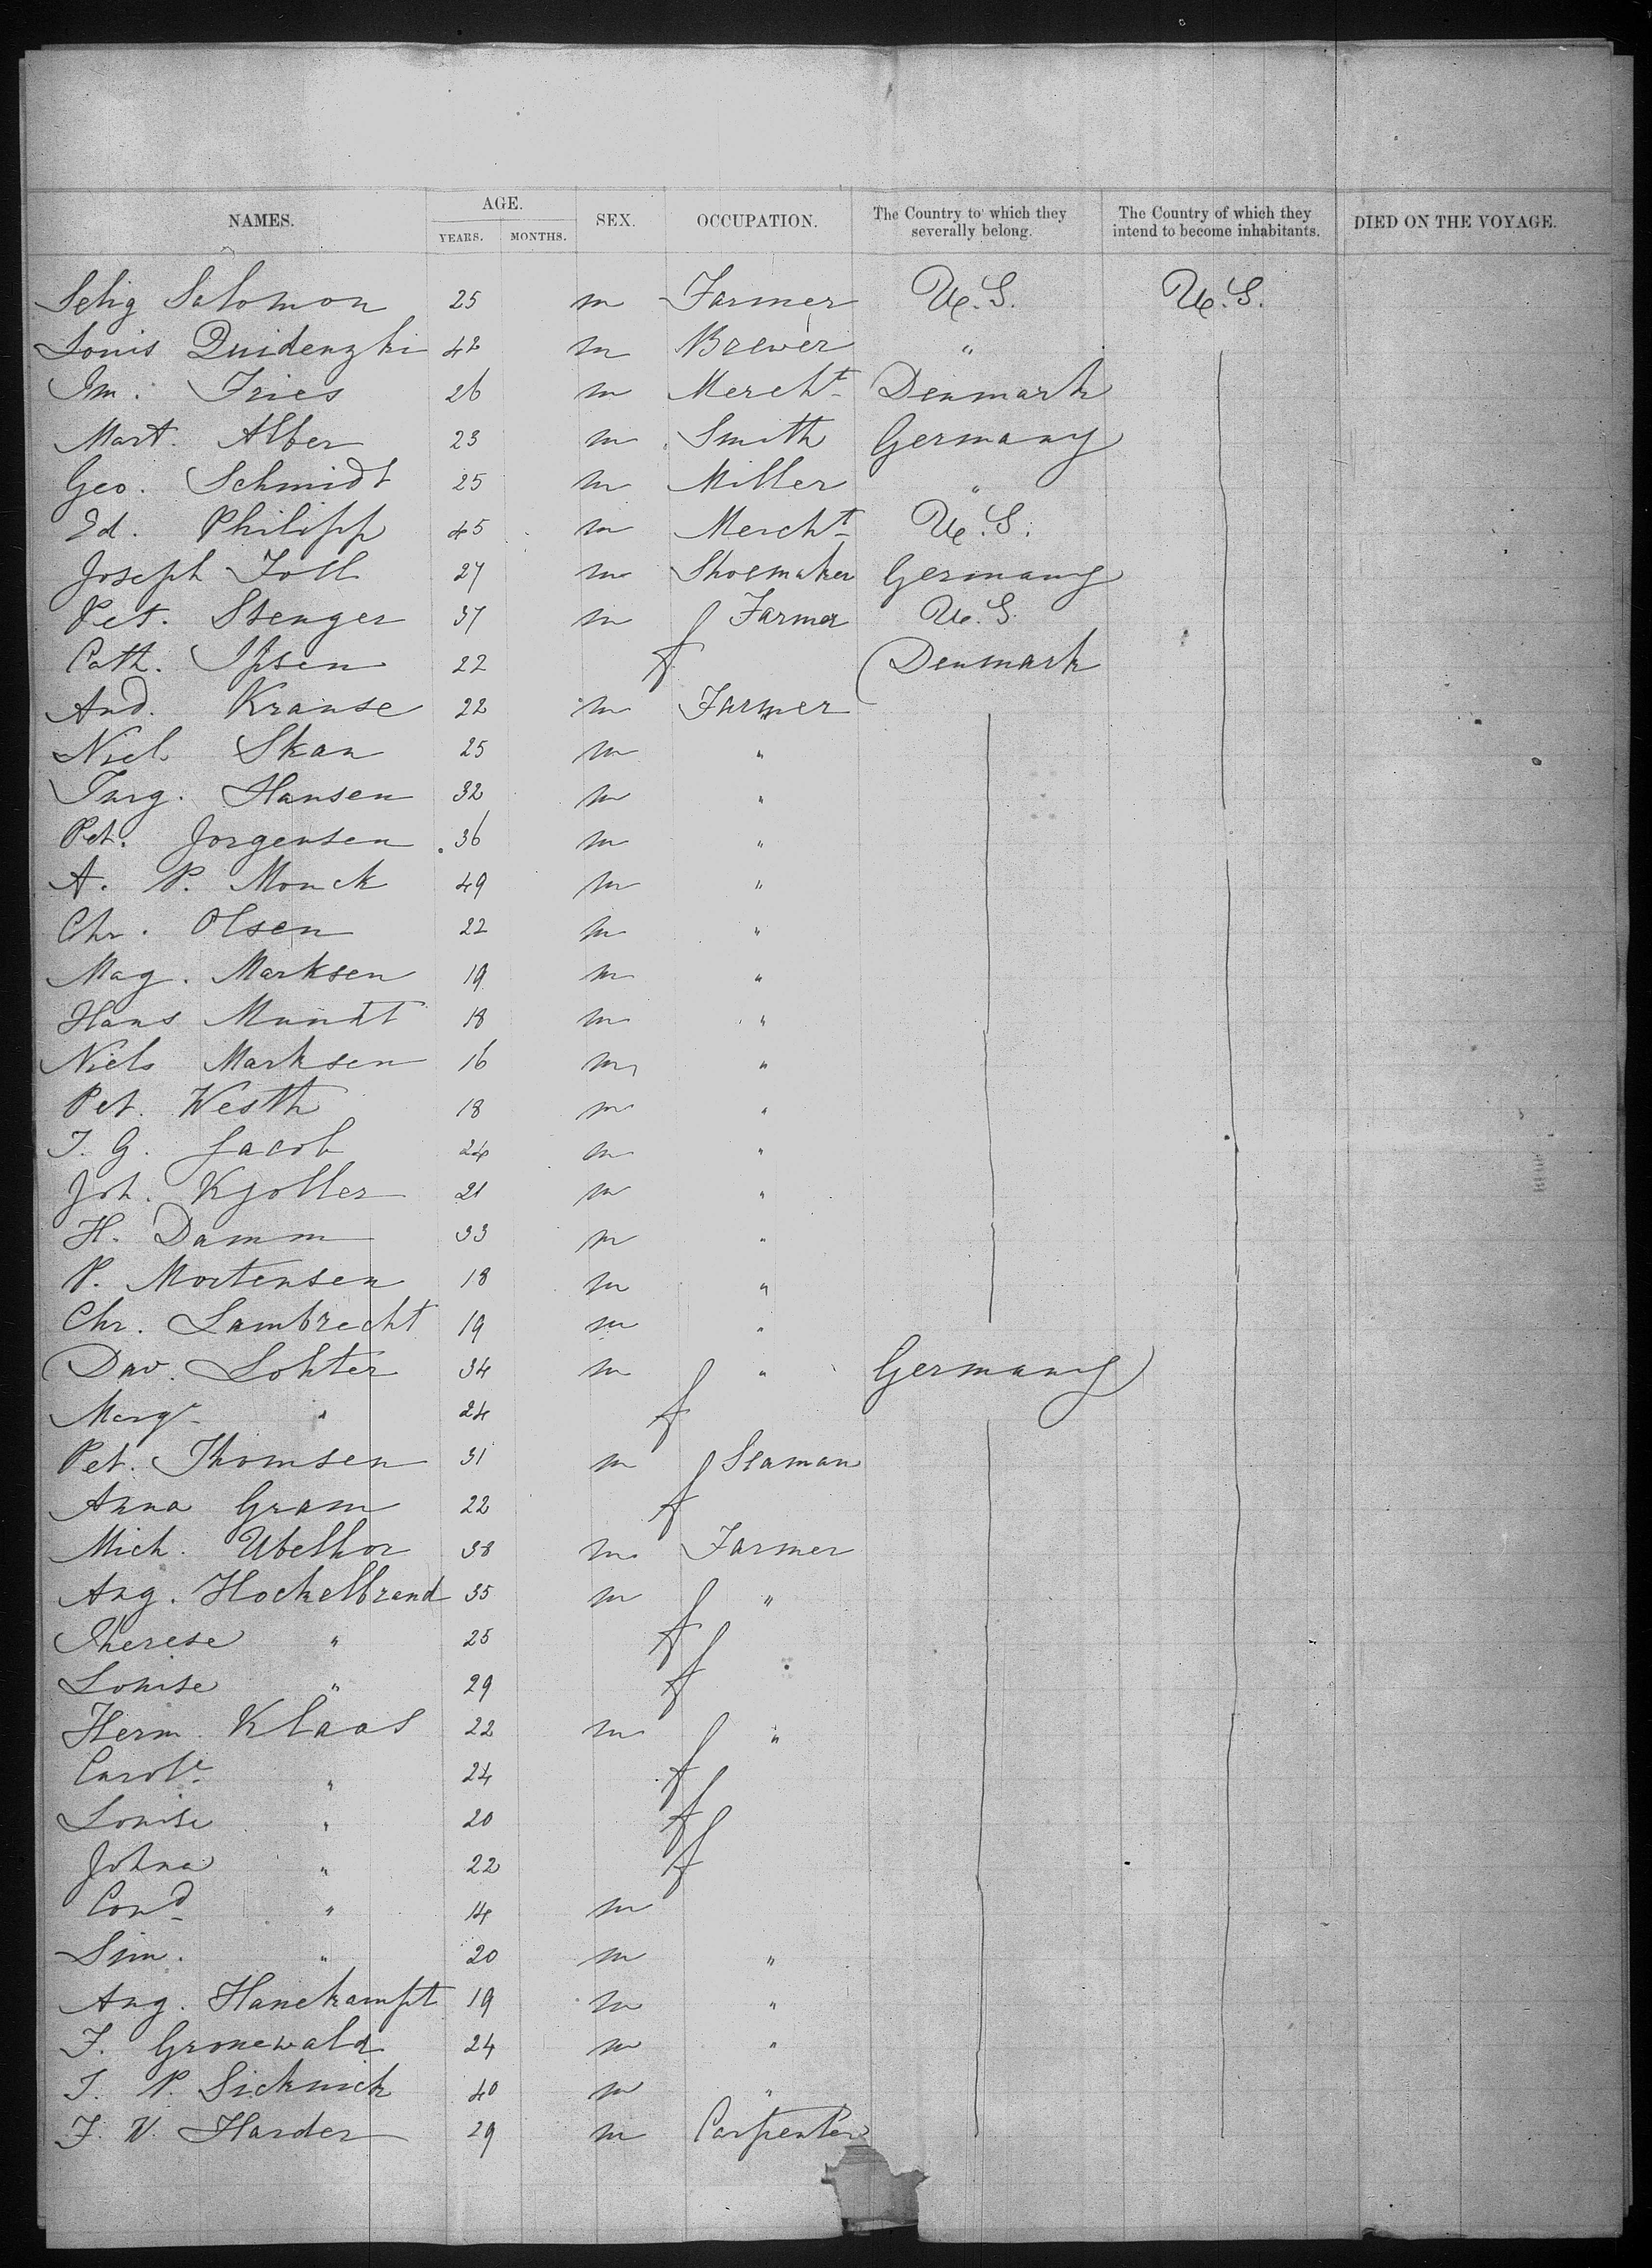 NAMES. AGE. SEX. OCCUPATION. The Country to which they severally belong. The Country of which they intend to become inhabitants. DIED ON THE VOYAGE.
YEARS. MONTHS.
Selig Salomon 25 m Farmer U.S. U.S.
Louis Quidenzki 42 m Brewer "
Im. Fries 26 m Mercht Denmark
Mart. Alber 23 m Smith Germany
Geo. Schmidt 25 m Miller "
Ed. Philipp 45 m Mercht U.S.
Joseph Joll 27 m Shoemaker Germany
Pet. Stenger 37 m Farmer U.S.
Cath. Ipsen 22 f Denmark
And. Krause 22 m Farmer
Niel. Skan 25 m "
Jurg. Hansen 32 m "
Pet. Jorgensen 36 m "
A. P. Monck 49 m "
Chr. Olsen 22 m "
Mag. Marksen 19 m "
Hans Mundt 18 m "
Niels Marksen 16 m "
Pet. Westh 18 m "
J. G. Jacob 24 m "
Joh. Kjoller 21 m "
H. Damm 33 m "
P. Mortensen 18 m "
Chr. Lambrecht 19 m "
Dav. Lohter 34 m " Germany
Marge " 24 f
Pet. Thomsen 31 m Seaman
Anna Gram 22 f
Mich. Ubelhor 38 m Farmer
Aug. Hockelbrand 35 m "
Therese " 25 f
Louise " 29 f
Herm. Klaas 22 m "
Carole " 24 f
Louise " 20 f
Johna " 22 f
Cond " 14 m
Sim. " 20 m "
Aug. Hanekampt 19 m "
F. Gronewald 24 m "
J. P. Sicknick 40 m "
J. V. Harder 29 m Carpenter